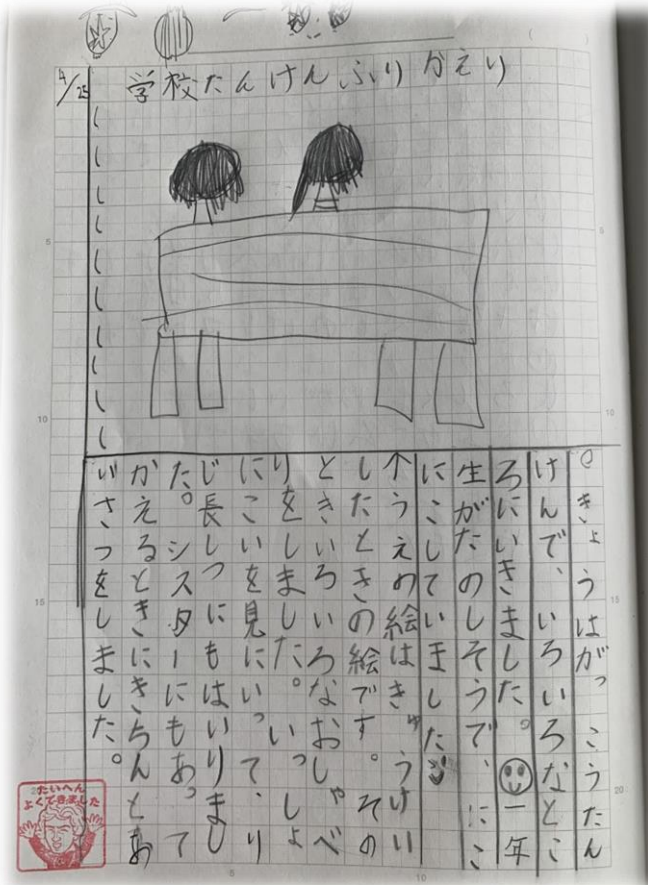 4/25
学校たんけんふりかえり
きょうはがっこうたん
けんで、いろいろなとこ
ろにいきました。一年
生がたのしそうで、にこ
にこしていました
↑うえの絵はきゅうけい
したときの絵です。その
ときいろいろなおしゃべ
りをしました。いっしょ
にこいを見にいって、り
じ長しつにもはいりまし
た。シスターにもあって
かえるときにきちんとあ
いさつをしました。
たいへん
よくできました
5
10
15
5
10
15
20
5
10